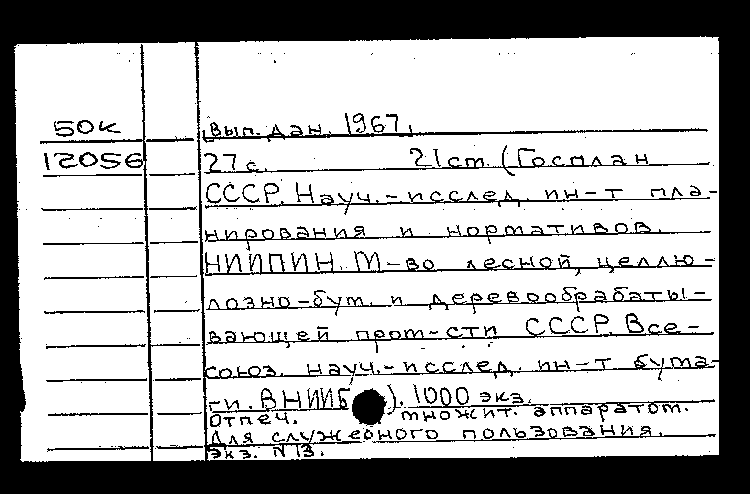 50к
вып. дан. 1967,
12056
27 с. 21 ст. (Госплан
СССР. Науч.-исслед. ин-т пла-
нирования и нормативов.
НИИПИН. М-во лесной, целлю-
лозно-бум. и деревообрабаты-
вающей пром-сти СССР. Все-
союз. науч.-исслед. ин-т бума-
ги. ВНИИБ). 1000 экз.
Отпеч. множит. аппаратом.
Для служебного пользования.
Экз. N 13.